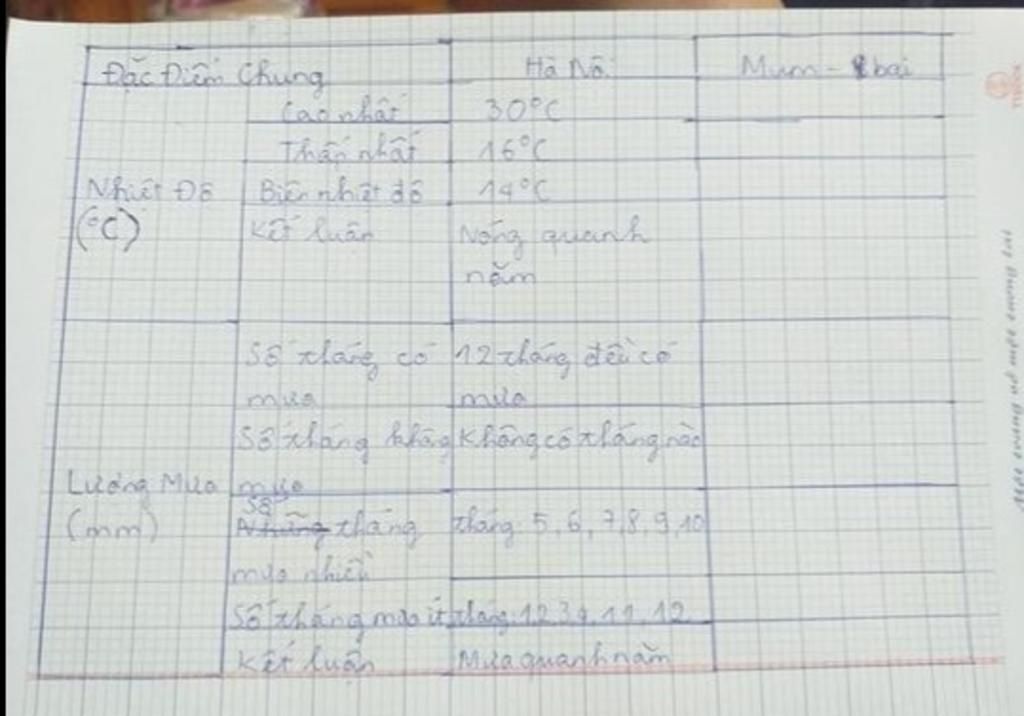 Đặc Điểm Chung Hà Nô Mum - bai
Cao nhất 30°C
Thấp nhất 16°C
Nhiệt Độ Biên nhiệt độ 14°C
(°C) Kết luận Nóng quanh
năm
Số tháng có 12 tháng đều có
mưa mưa
Số tháng không Không có tháng nào
Lượng Mưa mưa
Số
(mm) Những tháng tháng 5, 6, 7, 8, 9, 10
mưa nhiều
Số tháng mưa ít tháng 1,2,3,4, 11, 12
Kết luận Mưa quanh năm